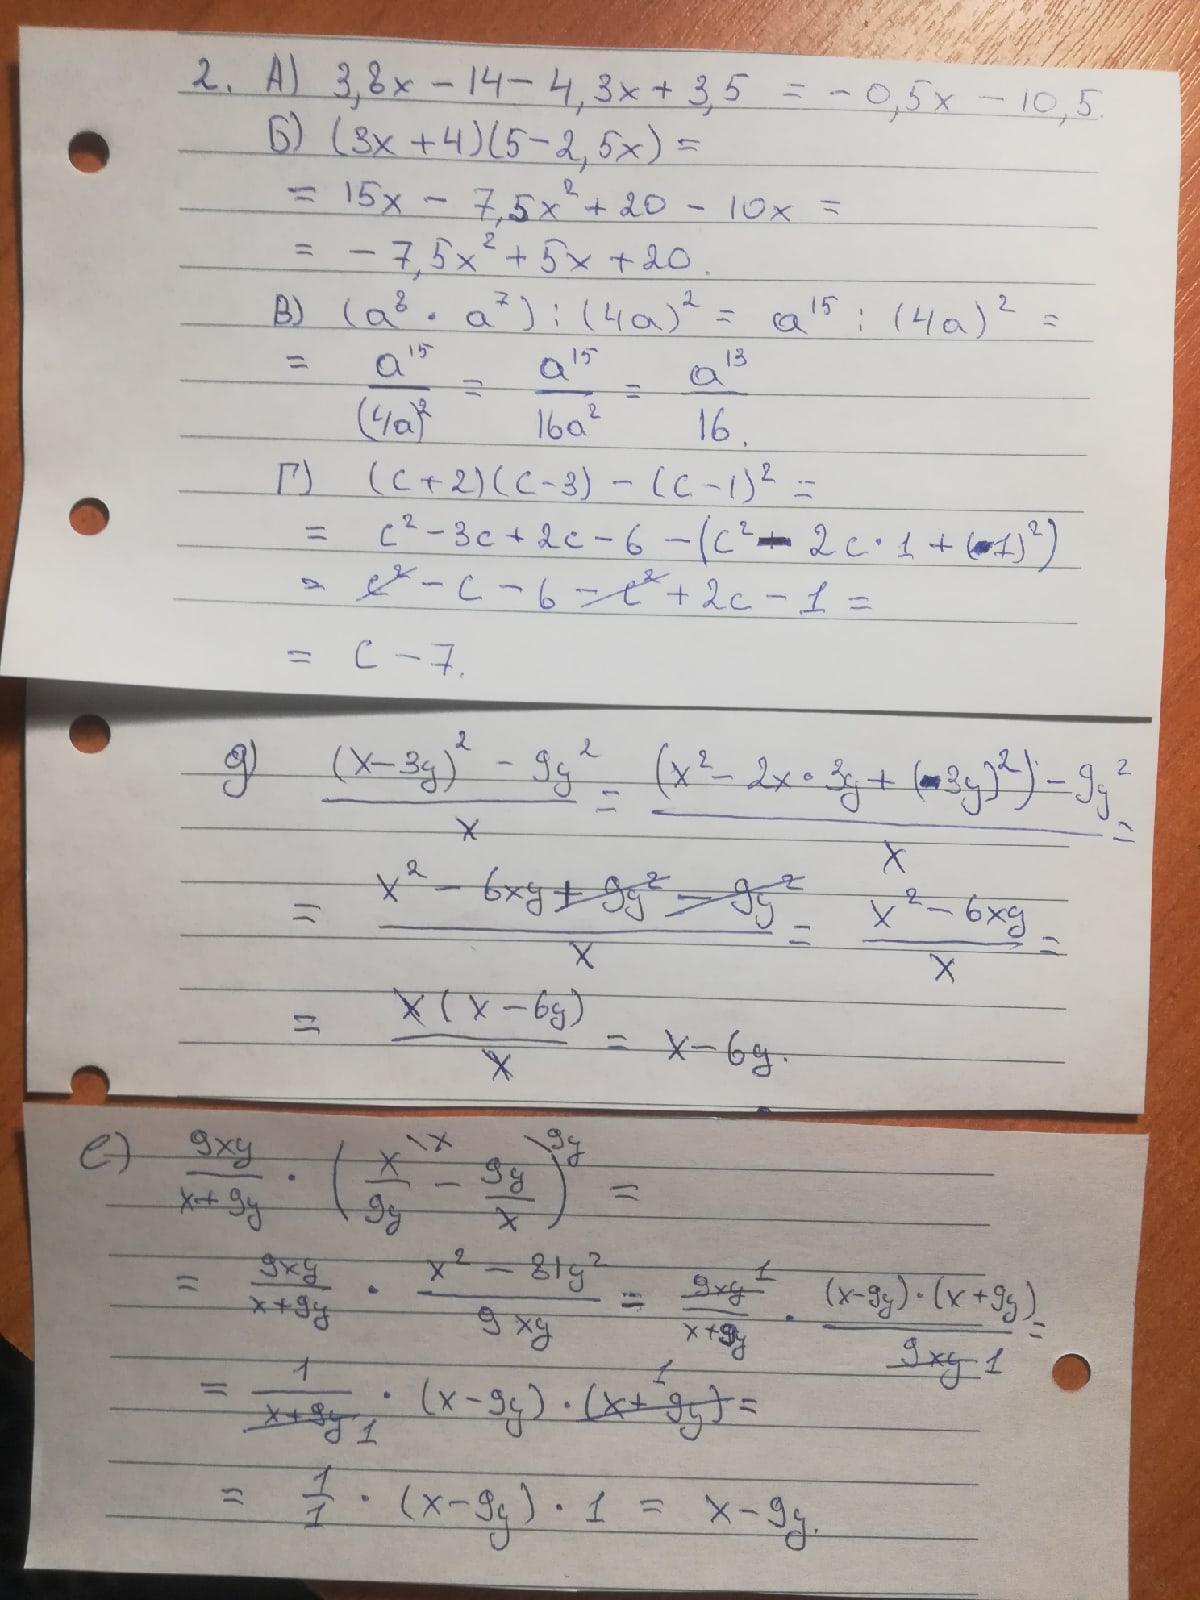 2. А) 3,8x − 14 − 4,3x + 3,5 = −0,5x − 10,5.
Б) (3x + 4)(5 − 2,5x) =
= 15x − 7,5x² + 20 − 10x =
= −7,5x² + 5x + 20.
В) (a⁸ · a⁷) : (4a)² = a¹⁵ : (4a)² =
= a¹⁵/(4a)² = a¹⁵/16a² = a¹³/16.
Г) (c + 2)(c − 3) − (c − 1)² =
= c² − 3c + 2c − 6 − (c² − 2c · 1 + (1)²)
= c² − c − 6 − c² + 2c − 1 =
= c − 7.
д) ((x − 3y)² − 9y²)/x = ((x² − 2x · 3y + (3y)²) − 9y²)/x =
= (x² − 6xy + 9y² − 9y²)/x = (x² − 6xy)/x =
= x(x − 6y)/x = x − 6y.
е) 9xy/(x + 9y) · (x/9y \x − 9y/x \9y) =
= 9xy/(x + 9y) · (x² − 81y²)/9xy = 9xy 1/(x + 9y) · (x − 9y) · (x + 9y)/9xy 1 =
= 1/(x + 9y) 1 · (x − 9y) · (x + 9y) 1 =
= 1/1 · (x − 9y) · 1 = x − 9y.